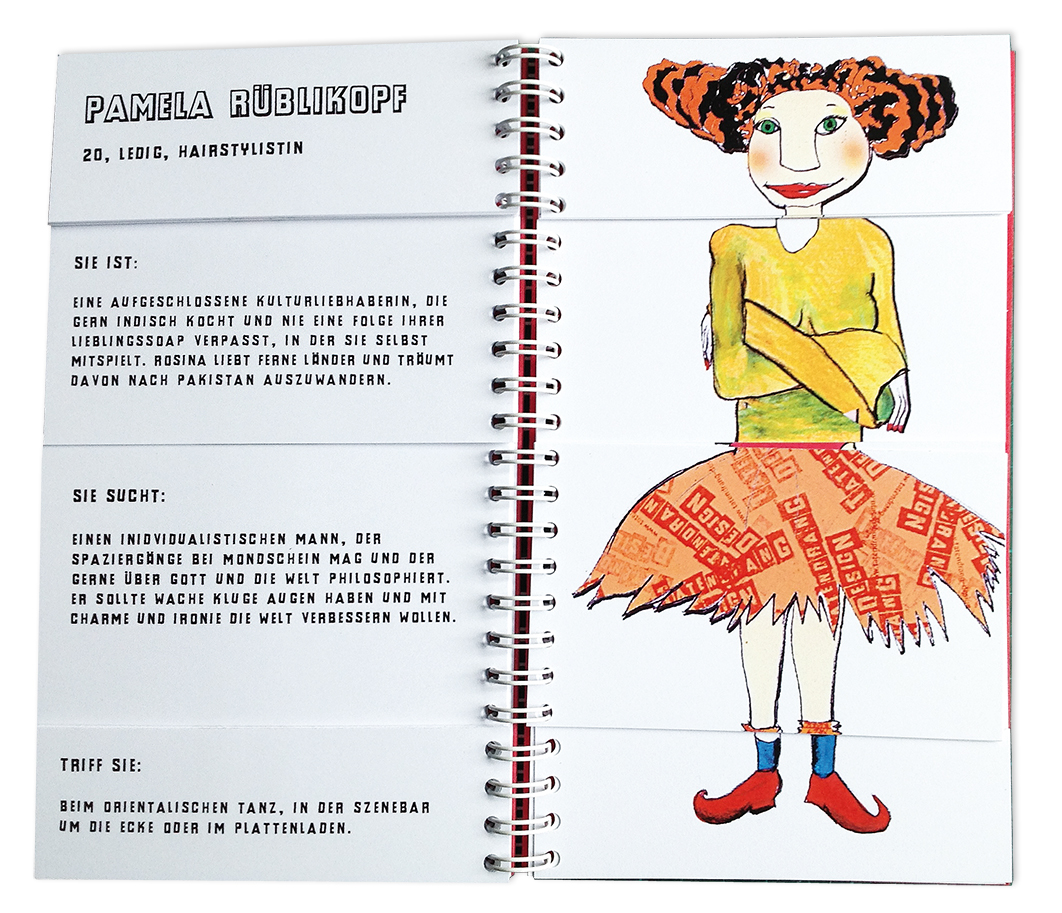 PAMELA RÜBLIKOPF
20, LEDIG, HAIRSTYLISTIN
SIE IST:
EINE AUFGESCHLOSSENE KULTURLIEBHABERIN, DIE
GERN INDISCH KOCHT UND NIE EINE FOLGE IHRER
LIEBLINGSSOAP VERPASST, IN DER SIE SELBST
MITSPIELT. ROSINA LIEBT FERNE LÄNDER UND TRÄUMT
DAVON NACH PAKISTAN AUSZUWANDERN.
SIE SUCHT:
EINEN INIDVIDUALISTISCHEN MANN, DER
SPAZIERGÄNGE BEI MONDSCHEIN MAG UND DER
GERNE ÜBER GOTT UND DIE WELT PHILOSOPHIERT.
ER SOLLTE WACHE KLUGE AUGEN HABEN UND MIT
CHARME UND IRONIE DIE WELT VERBESSERN WOLLEN.
TRIFF SIE:
BEIM ORIENTALISCHEN TANZ, IN DER SZENEBAR
UM DIE ECKE ODER IM PLATTENLADEN.
DESIGN
DESIGN
DESIGN
DESIGN